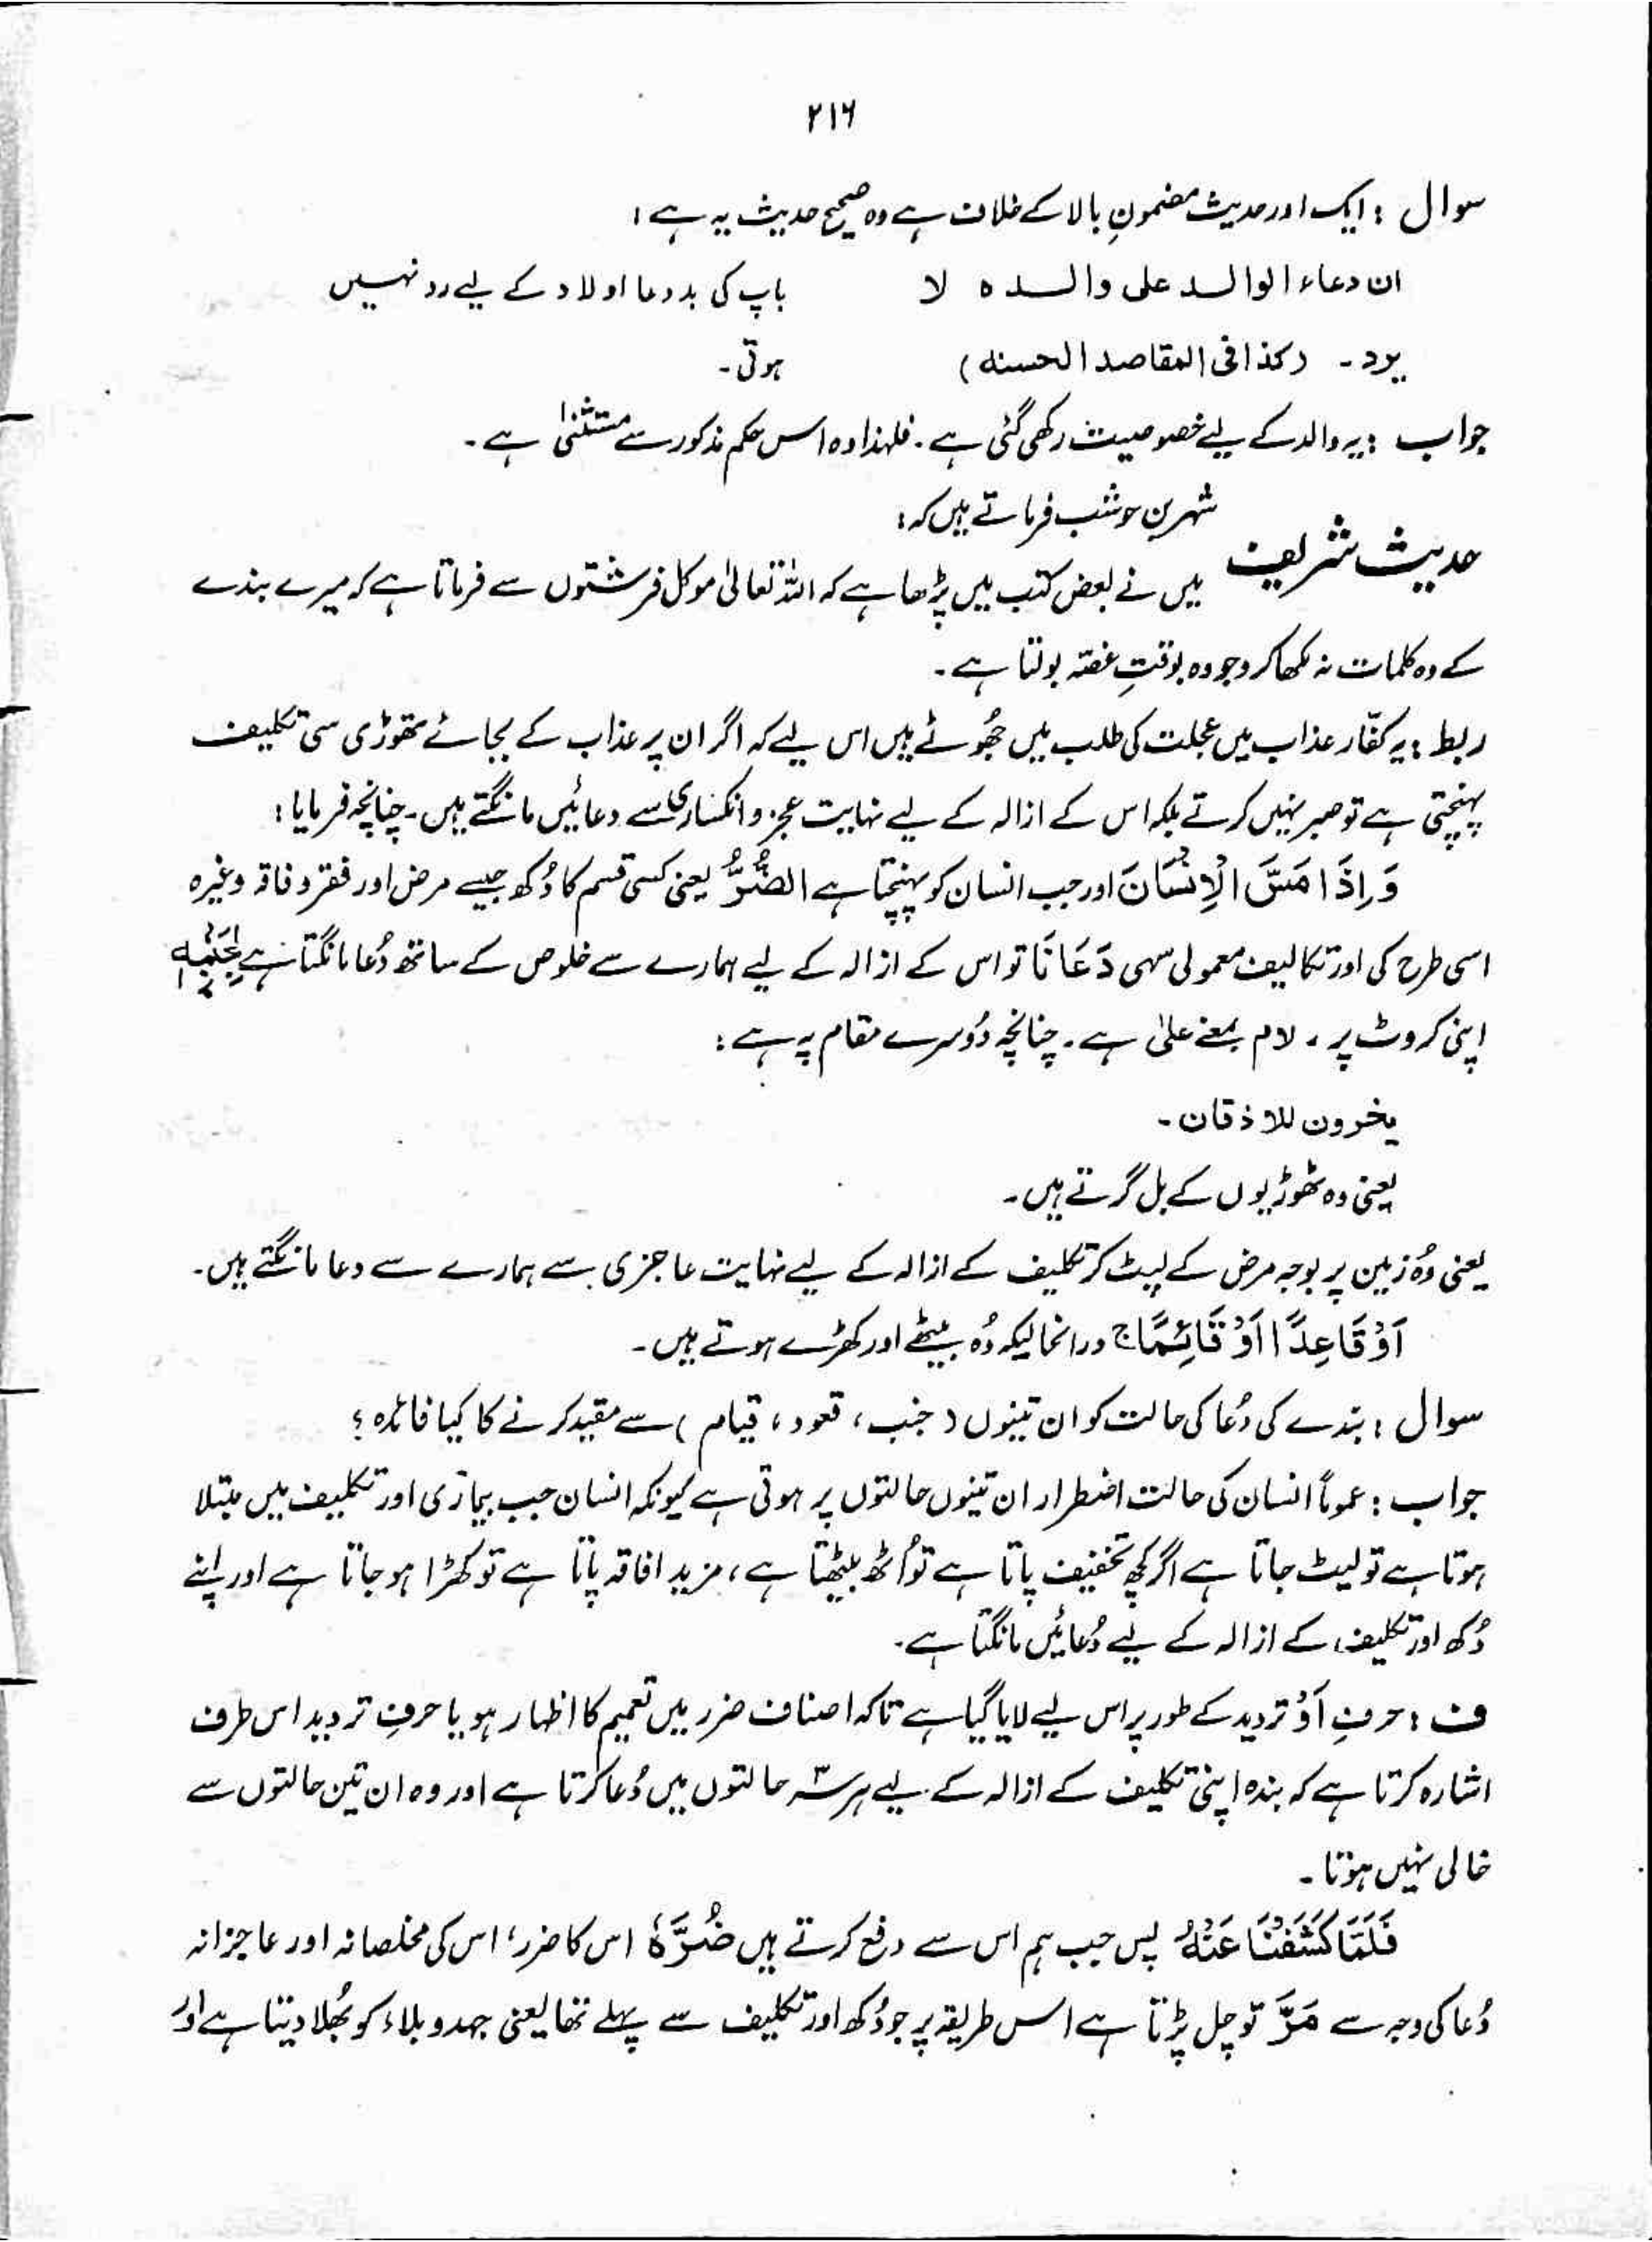 ۲۱۶
سوال : ایک اور حدیث مضمونِ بالا کے خلاف ہے وہ صحیح حدیث یہ ہے :
ان دعاء الوالد علی والدہ لا باپ کی بددعا اولاد کے لیے رد نہیں
یرد ۔ (کذا فی المقاصد الحسنہ) ہوتی ۔
جواب : یہ والد کے لیے خصوصیت رکھی گئی ہے ۔ فلہٰذا وہ اس حکم مذکور سے مستثنیٰ ہے ۔
شہر بن حوشب فرماتے ہیں کہ :
حدیث شریف میں نے بعض کتب میں پڑھا ہے کہ اللہ تعالیٰ موکل فرشتوں سے فرماتا ہے کہ میرے بندے
کے وہ کلمات نہ لکھا کرو جو وہ بوقتِ غصّہ بولتا ہے ۔
ربط : یہ کفّار عذاب میں عجلت کی طلب میں جھُوٹے ہیں اس لیے کہ اگر ان پر عذاب کے بجائے تھوڑی سی تکلیف
پہنچتی ہے تو صبر نہیں کرتے بلکہ اس کے ازالہ کے لیے نہایت عجز و انکساری سے دعائیں مانگتے ہیں ۔ چنانچہ فرمایا :
وَ اِذَا مَسَّ الْاِنْسَانَ اور جب انسان کو پہنچتا ہے الضُّرُّ یعنی کسی قسم کا دُکھ جیسے مرض اور فقر و فاقہ وغیرہ
اسی طرح کی اور تکالیف معمولی سہی دَعَانَا تو اس کے ازالہ کے لیے ہمارے سے خلوص کے ساتھ دُعا مانگتا ہے لِجَنْۢبِهٖۤ
اپنی کروٹ پر ، لام بمعنے علیٰ ہے ۔ چنانچہ دُوسرے مقام پہ ہے :
یخرون للاذقان ۔
یعنی وہ ٹھوڑیوں کے بل گرتے ہیں ۔
یعنی وُہ زمین پر بوجہ مرض کے لیٹ کر تکلیف کے ازالہ کے لیے نہایت عاجزی سے ہمارے سے دعا مانگتے ہیں ۔
اَوْ قَاعِدًا اَوْ قَائِمًا ج درانحالیکہ وُہ بیٹھے اور کھڑے ہوتے ہیں ۔
سوال : بندے کی دُعا کی حالت کو ان تینوں (جنب ، قعود ، قیام) سے مقید کرنے کا کیا فائدہ ؟
جواب : عموماً انسان کی حالت اضطرار ان تینوں حالتوں پر ہوتی ہے کیونکہ انسان جب بیماری اور تکلیف میں مبتلا
ہوتا ہے تو لیٹ جاتا ہے اگر کچھ تخفیف پاتا ہے تو اُٹھ بیٹھتا ہے ، مزید افاقہ پاتا ہے تو کھڑا ہو جاتا ہے اور اپنے
دُکھ اور تکلیف کے ازالہ کے لیے دُعائیں مانگتا ہے ۔
ف : حرفِ اَوْ تردید کے طور پر اس لیے لایا گیا ہے تاکہ اصناف ضرر میں تعمیم کا اظہار ہو یا حرفِ تردید اس طرف
اشارہ کرتا ہے کہ بندہ اپنی تکلیف کے ازالہ کے لیے ہر سہ حالتوں میں دُعا کرتا ہے اور وہ ان تین حالتوں سے
خالی نہیں ہوتا ۔
فَلَمَّا كَشَفْنَا عَنْهُ پس جب ہم اس سے دفع کرتے ہیں ضُرَّهٗ اس کا ضرر ، اس کی مخلصانہ اور عاجزانہ
دُعا کی وجہ سے مَرَّ تو چل پڑتا ہے اس طریقہ پر جو دُکھ اور تکلیف سے پہلے تھا یعنی جہد و بلاء کو بھُلا دیتا ہے اور